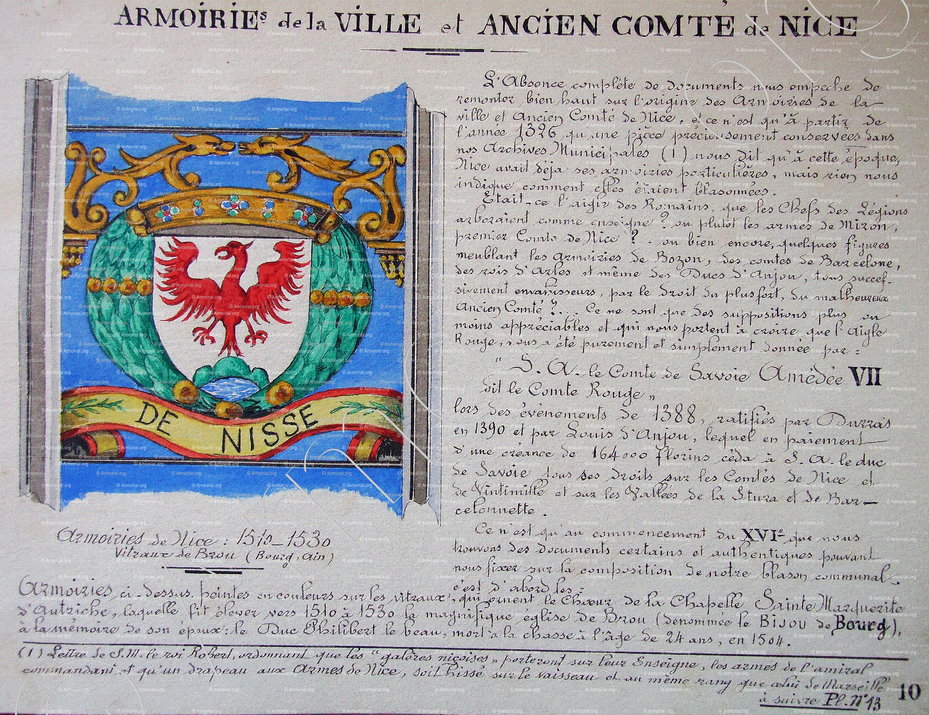 ARMOIRIEs de la VILLE et ANCIEN COMTÉ de NICE
DE NISSE
Armoiries de Nice : 1510_1530
Vitraux de Brou (Bourg, Ain)
L'Absence complète de documents nous empeche de
remonter bien haut sur l'origine des Armoiries de la
ville et Ancien Comté de Nice, et ce n'est qu'à partir de
l'année 1326 qu'une pièce précieusement conservées dans
nos Archives Municipales (1) nous dit qu'à cette époque,
Nice avait déja ses armoiries particulières, mais rien nous
indique comment elles étaient blasonnées.
Etait-ce l'aigle des Romains, que les Chefs des Légions
arboraient comme enseigne ? ou plutot les armes de Miron,
premier Comte de Nice ? _ ou bien encore, quelques figures
meublant les armoiries de Bozon, des comtes de Barcelone,
des rois d'Arles et même des Ducs d'Anjou, tous succes-
sivement envahisseurs, par le droit du plus fort, du malheureux
Ancien Comté ?... Ce ne sont que des suppositions plus ou
moins appréciables et qui nous portent à croire, que l'Aigle
Rouge, nous a été purement et simplement donnée par :
"S. A. le Comte de Savoie Amédée VII
dit le Comte Rouge"
lors des évenements de 1388, ratifiés par Durras
en 1390 et par Louis d'Anjou, lequel en paiement
d'une créance de 164000 florins céda à S. A. le duc
de Savoie tous ses droits sur les Comtés de Nice et
de Vintimille et sur les Vallées de la Stura et de Bar_
celonnette.
Ce n'est qu'au commencement du XVIe que nous
trouvons des documents certains et authentiques pouvant
nous fixer sur la composition de notre blason communal.
c'est d'abord les :
Armoiries, ci-dessus, peintes en couleurs sur les vitraux, qui ornent le Chœur de la Chapelle Sainte Marguerite
d'Autriche, laquelle fit élever vers 1510 à 1530 la magnifique église de Brou (denommée le Bijou de Bourg),
à la mémoire de son époux : le Duc Philibert le beau, mort à la chasse à l'âge de 24 ans, en 1504.
(1) Lettre de S.M. le roi Robert, ordonnant que les "galères niçoises" porteront sur leur Enseigne, les armes de l'amiral
commandant et qu'un drapeau aux Armes de Nice, soit hissé sur le vaisseau et au même rang que celui de Marseille
à suivre Pl. N° 13
10